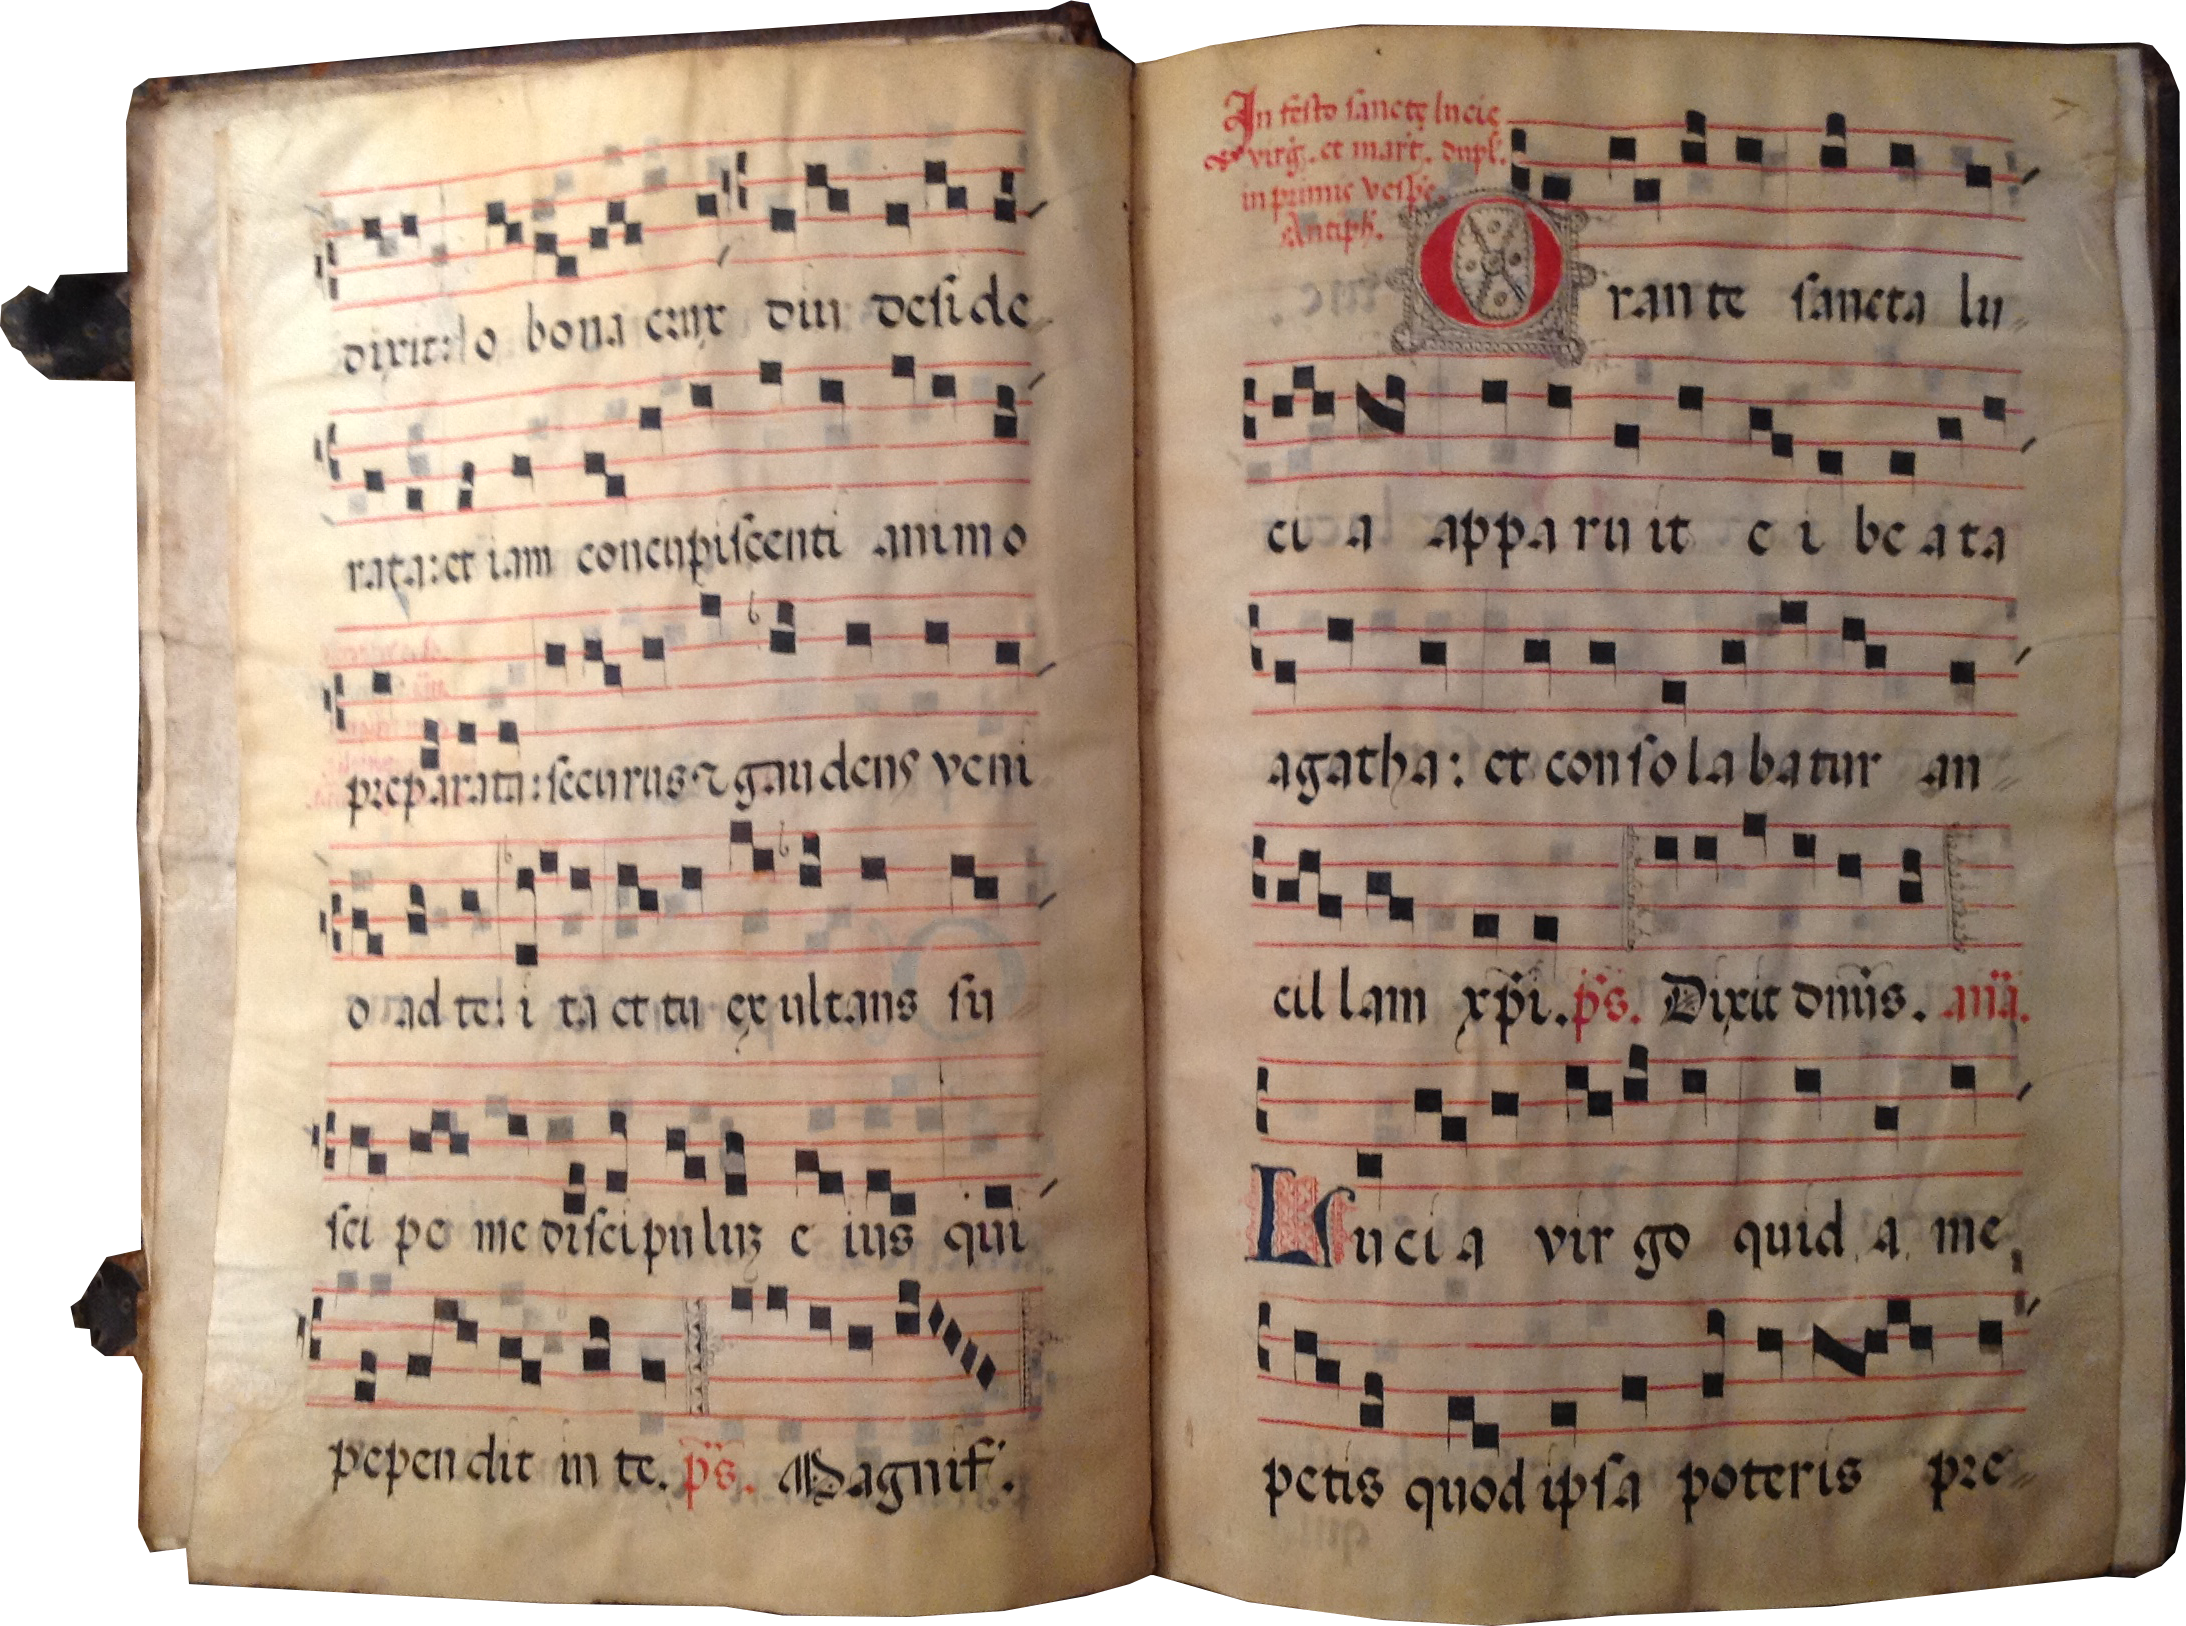 dixit: o bona crux diu deside
rata: et iam concupiscenti animo
preparata: securus ⁊ gaudens veni
o ad te: i ta et tu exultans su
sci pe me discipuluꝫ e ius qui
pependit in te. p̄s. Magnif.
In festo sanctę lucię
virg̃. et mart̃. dupl.
in primis vesp̃e.
Antiph̃.
O rante sancta lu
ci a apparuit e i beata
agatha: et consolabatur an-
cil lam xp̃i. p̄s. Dixit dom̃s. añа.
Lucia vir go quid a me
petis quod ipsa poteris pre-